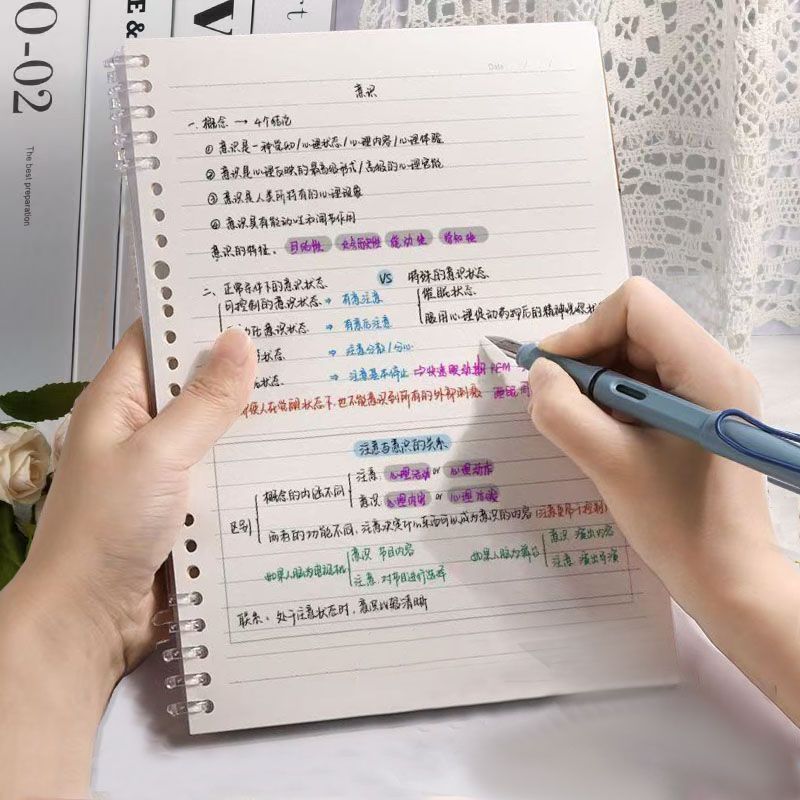 O-02
The best preparation
E &
V
rt
Date
意识
一、概念 → 4个结论
① 意识是一种觉知/心理状态/心理内容/心理体验
② 意识是心理反映的最高级形式/高级的心理官能
③ 意识是人类所特有的心理现象
④ 意识具有能动性和调节作用
意识的特征。 自觉性 能动性
二、正常条件下的意识状态 VS 特殊的意识状态
可控制的意识状态 ⇒ 有意注意 催眠状态
意识状态 ⇒ 有意后注意 服用心理促动药物后的精神恍惚状
状态 ⇒ 注意分散/分心
状态 ⇒ 注意基本停止 ⇒ 快速眼动期 REM
使人在觉醒状态下,也不能意识到所有的外部刺激
注意与意识的关系
区别 概念的内涵不同 注意:心理活动 or 心理动作
意识:心理内容 or 心理体验
两者的功能不同,注意决定什么东西可以成为意识的内容
如果人脑为电视机 意识 节目内容 如果人脑为舞台 意识 演出内容
注意:对节目进行选择 注意 演出导演
联系:处于注意状态时,意识比较清晰